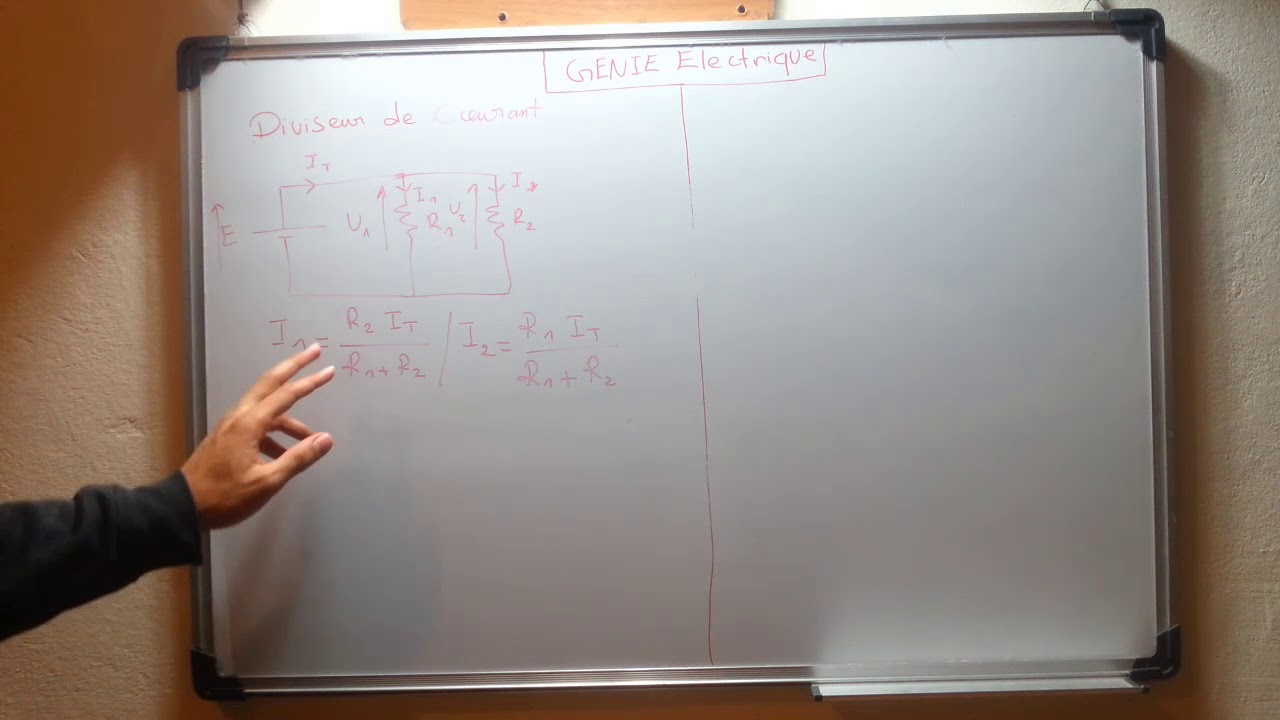 GENIE Electrique
Diviseur de Courant
I_T
E
U_1
I_1
R_1
U_2
I_2
R_2
I_1 = R_2 I_T / R_1 + R_2 / I_2 = R_1 I_T / R_1 + R_2